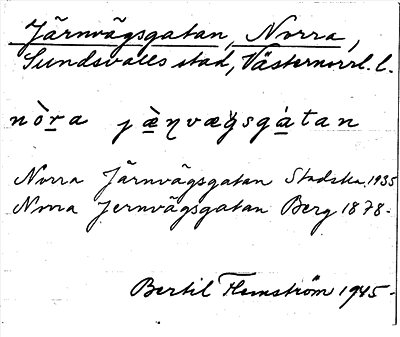 Järnvägsgatan, Norra,
Sundsvalls stad, Västernorrl. l.
nò̱ra jæ̱̀ŋvæɡsgá̱tan
Norra Järnvägsgatan Stadska. 1935
Norra Jernvägsgatan Berg 1878.
Bertil Flemström 1945.